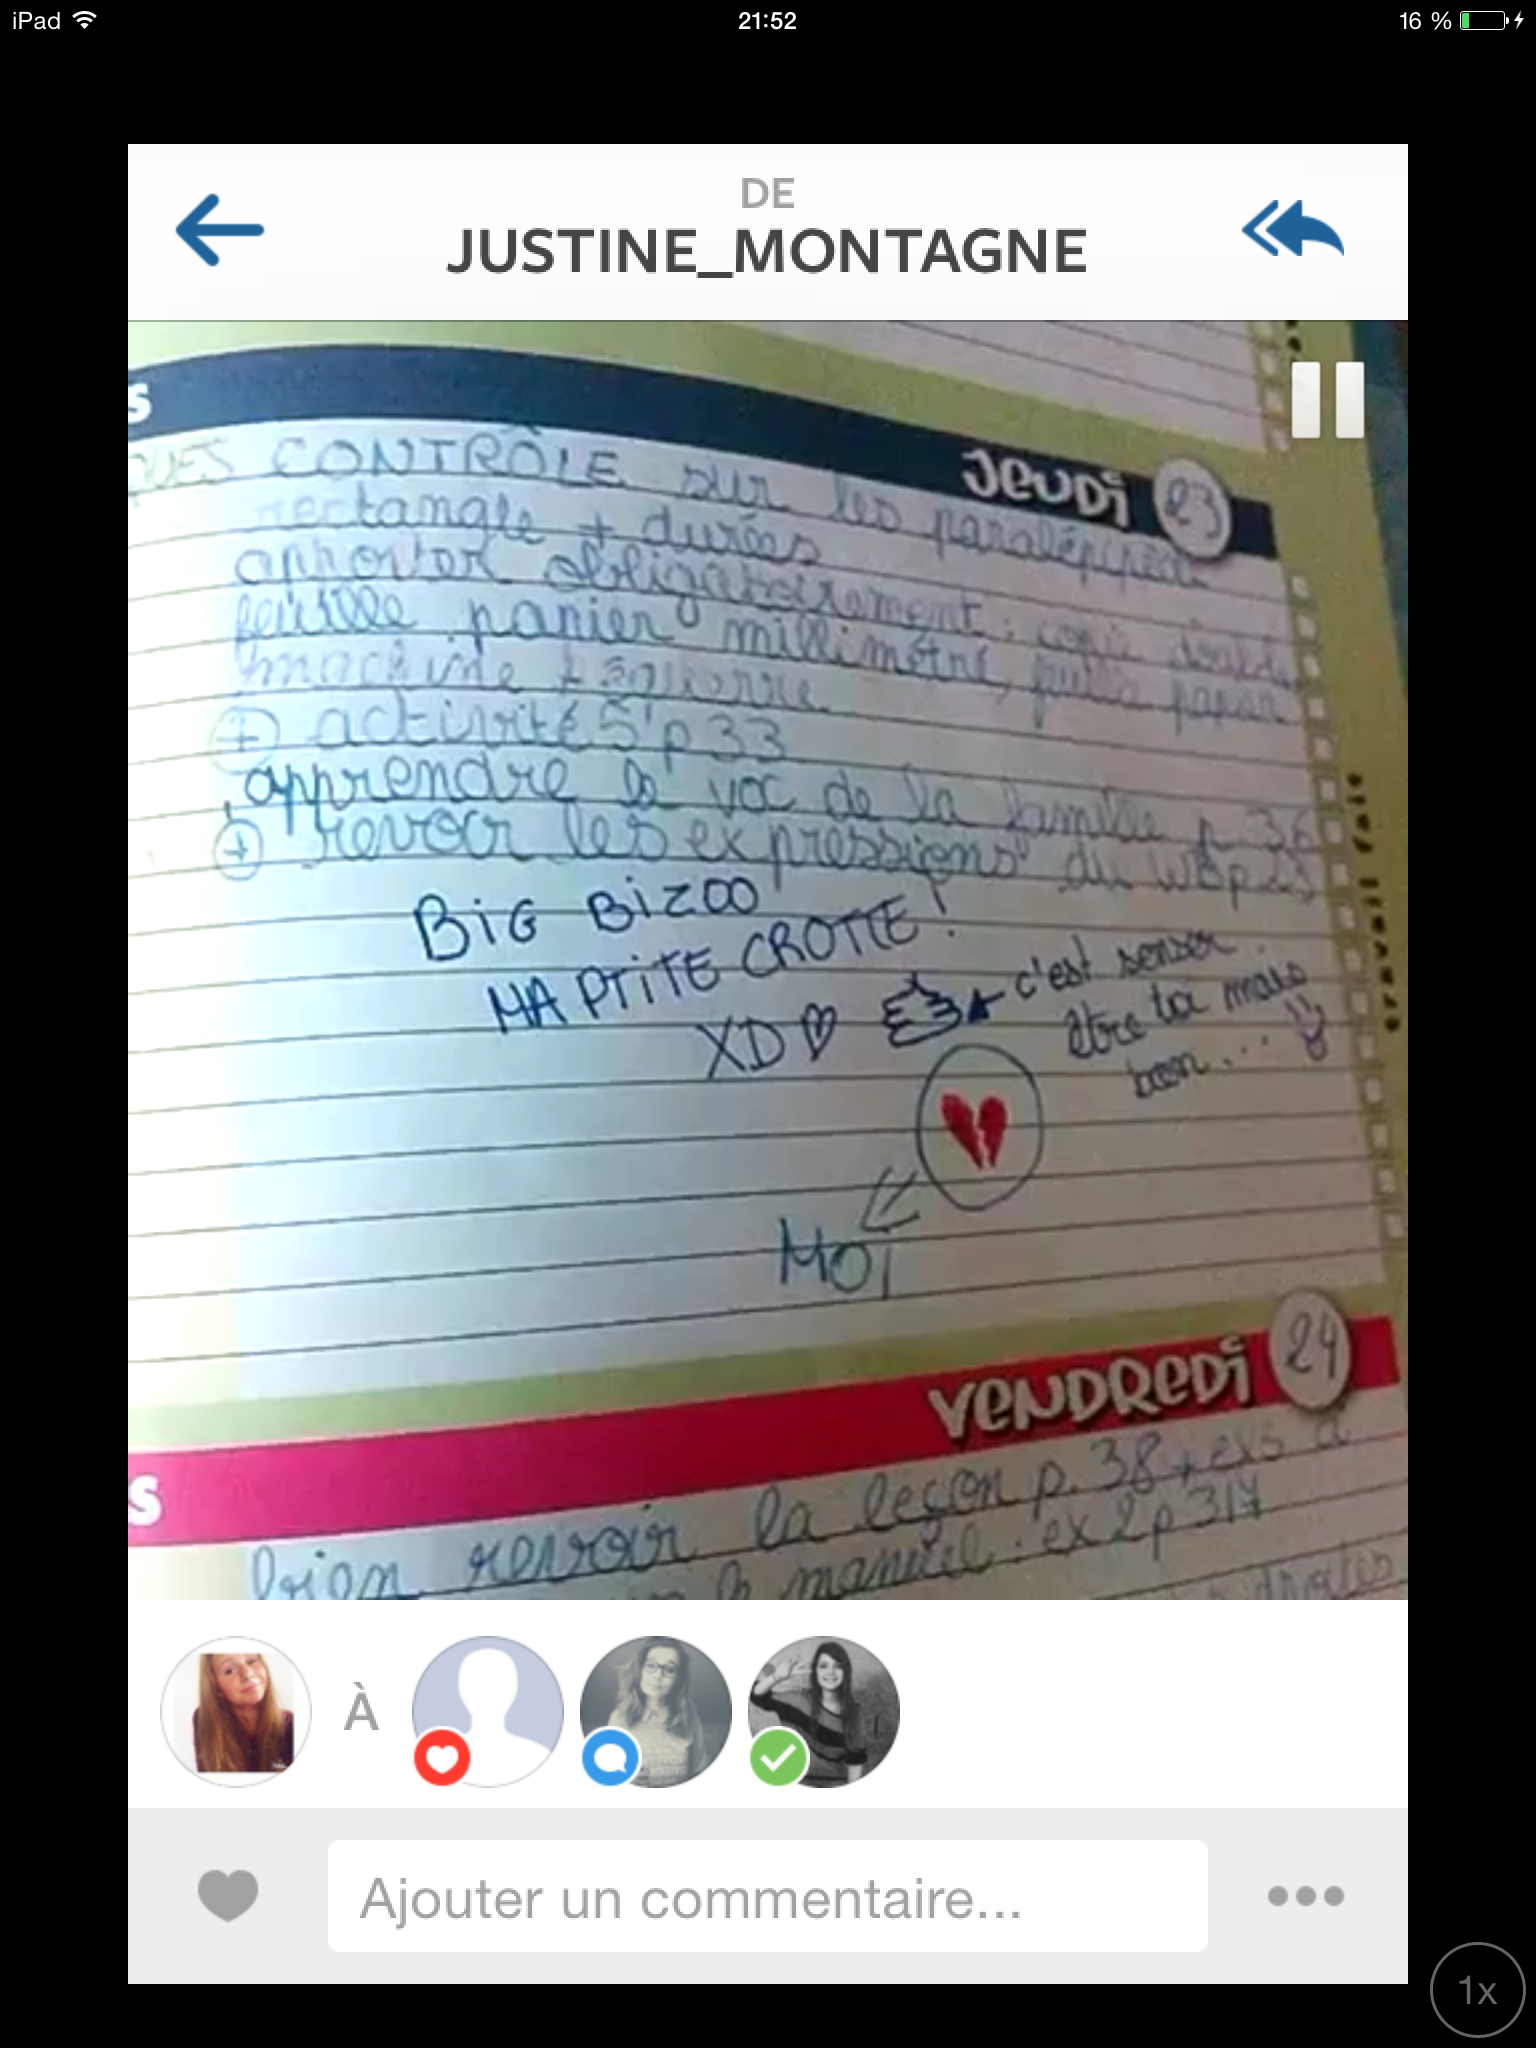 iPad 21:52 16 %
DE
JUSTINE_MONTAGNE
S
JEUDI 23
QUES CONTRÔLE sur les paralépipè
rectangle + durées
apporter obligatoirement : copie double
feuille papier millimétré, feuille papier
machine + équerre
+ activité 5 p 33
apprendre le voc de la famille p. 36
+ revoir les expressions du WB p 25
BiG BiZOO
MA PTiTE CROTTE !
XD c'est senser
être toi mais
bon...
MOi
VENDREDI 24
S
bien revoir la leçon p. 38 + exs à
manuel : ex 2 p 317
droites
À
Ajouter un commentaire...
1x